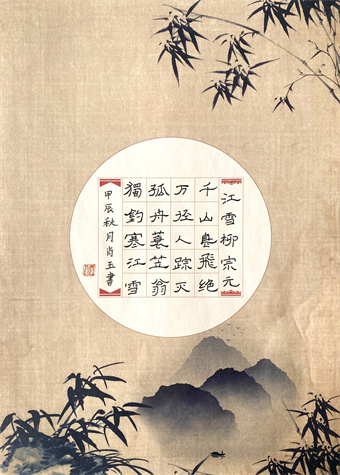 江雪柳宗元
千山鳥飛绝
万径人踪灭
孤舟蓑笠翁
獨釣寒江雪
甲辰秋月肖玉書